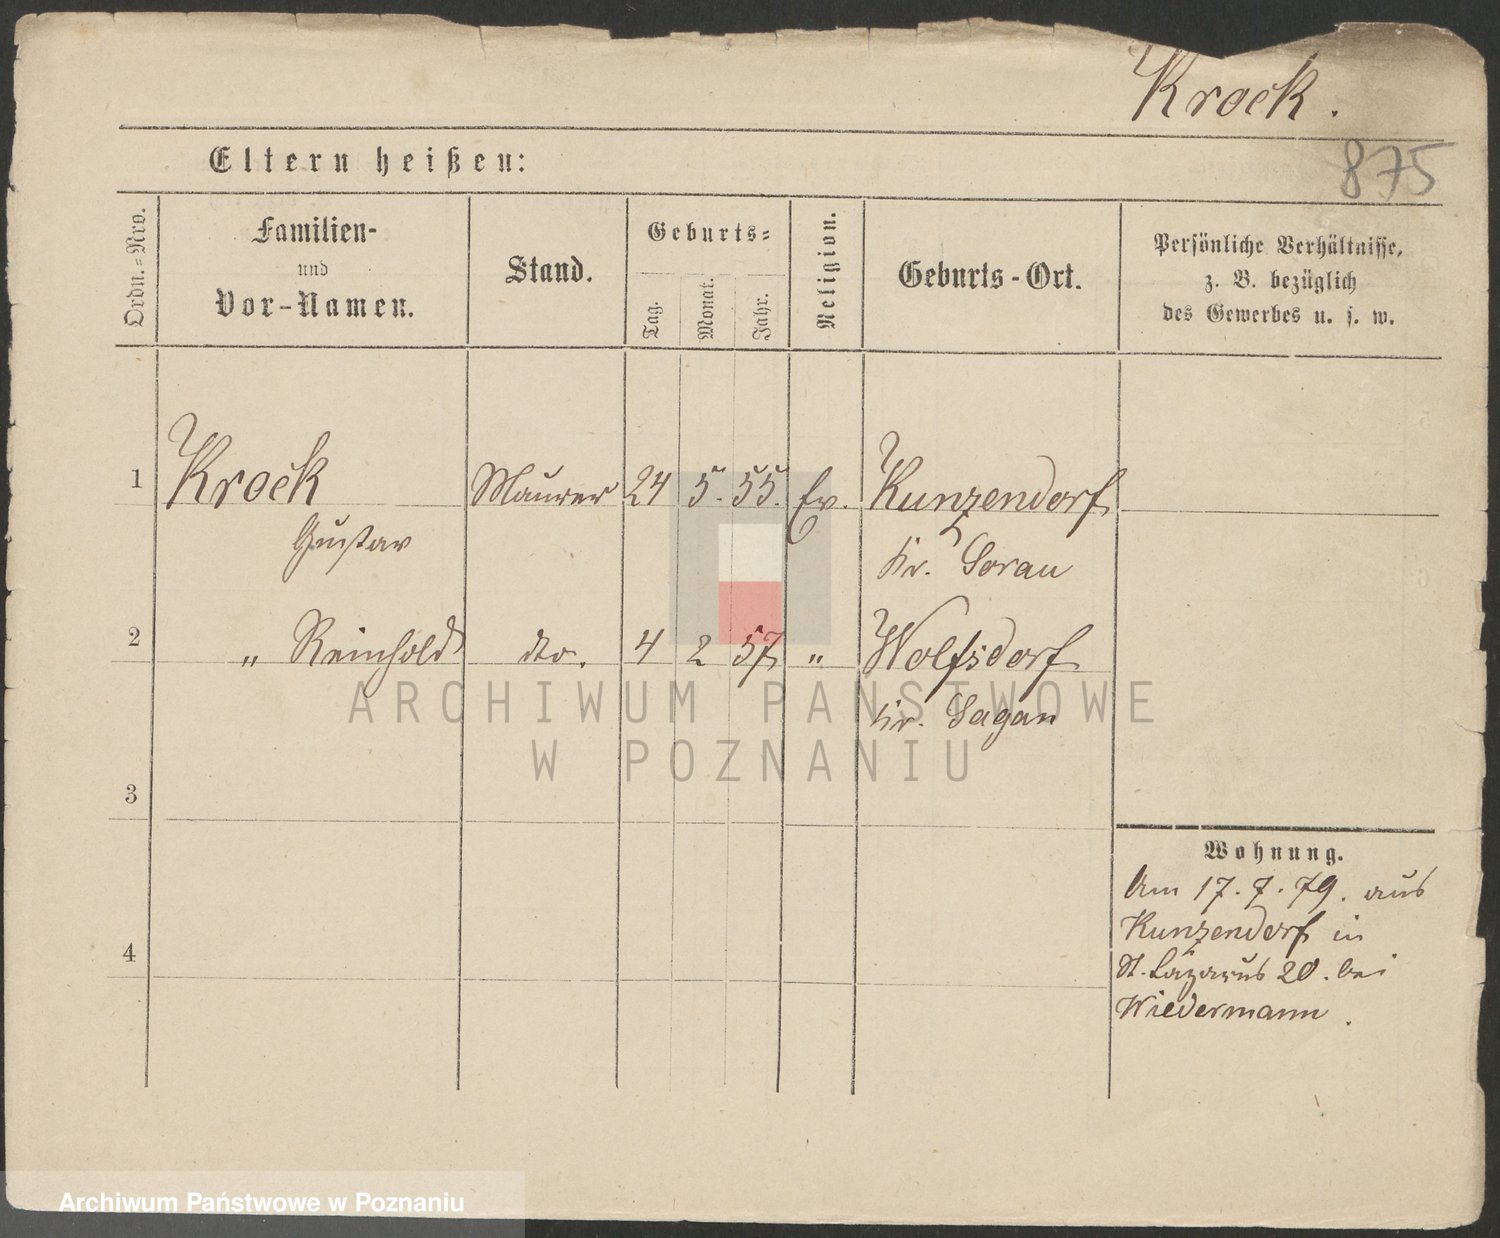 Krock.
875
Eltern heißen:
Ordn.-Nro.
Familien-
und
Vor-Namen.
Stand.
Geburts-
Tag.
Monat.
Jahr.
Religion.
Geburts-Ort.
Persönliche Verhältnisse,
z. B. bezüglich
des Gewerbes u. s. w.
1 Krock Maurer 24 5. 55. Ev. Kunzendorf
Gustav Kr. Sorau
2 " Reinhold dto. 4 2 57 " Wolfsdorf
Kr. Sagan
ARCHIWUM PAŃSTWOWE
W POZNANIU
3
4
Wohnung.
Am 17. 7. 79. aus
Kunzendorf in
St. Lazarus 20. bei
Wiedermann.
Archiwum Państwowe w Poznaniu